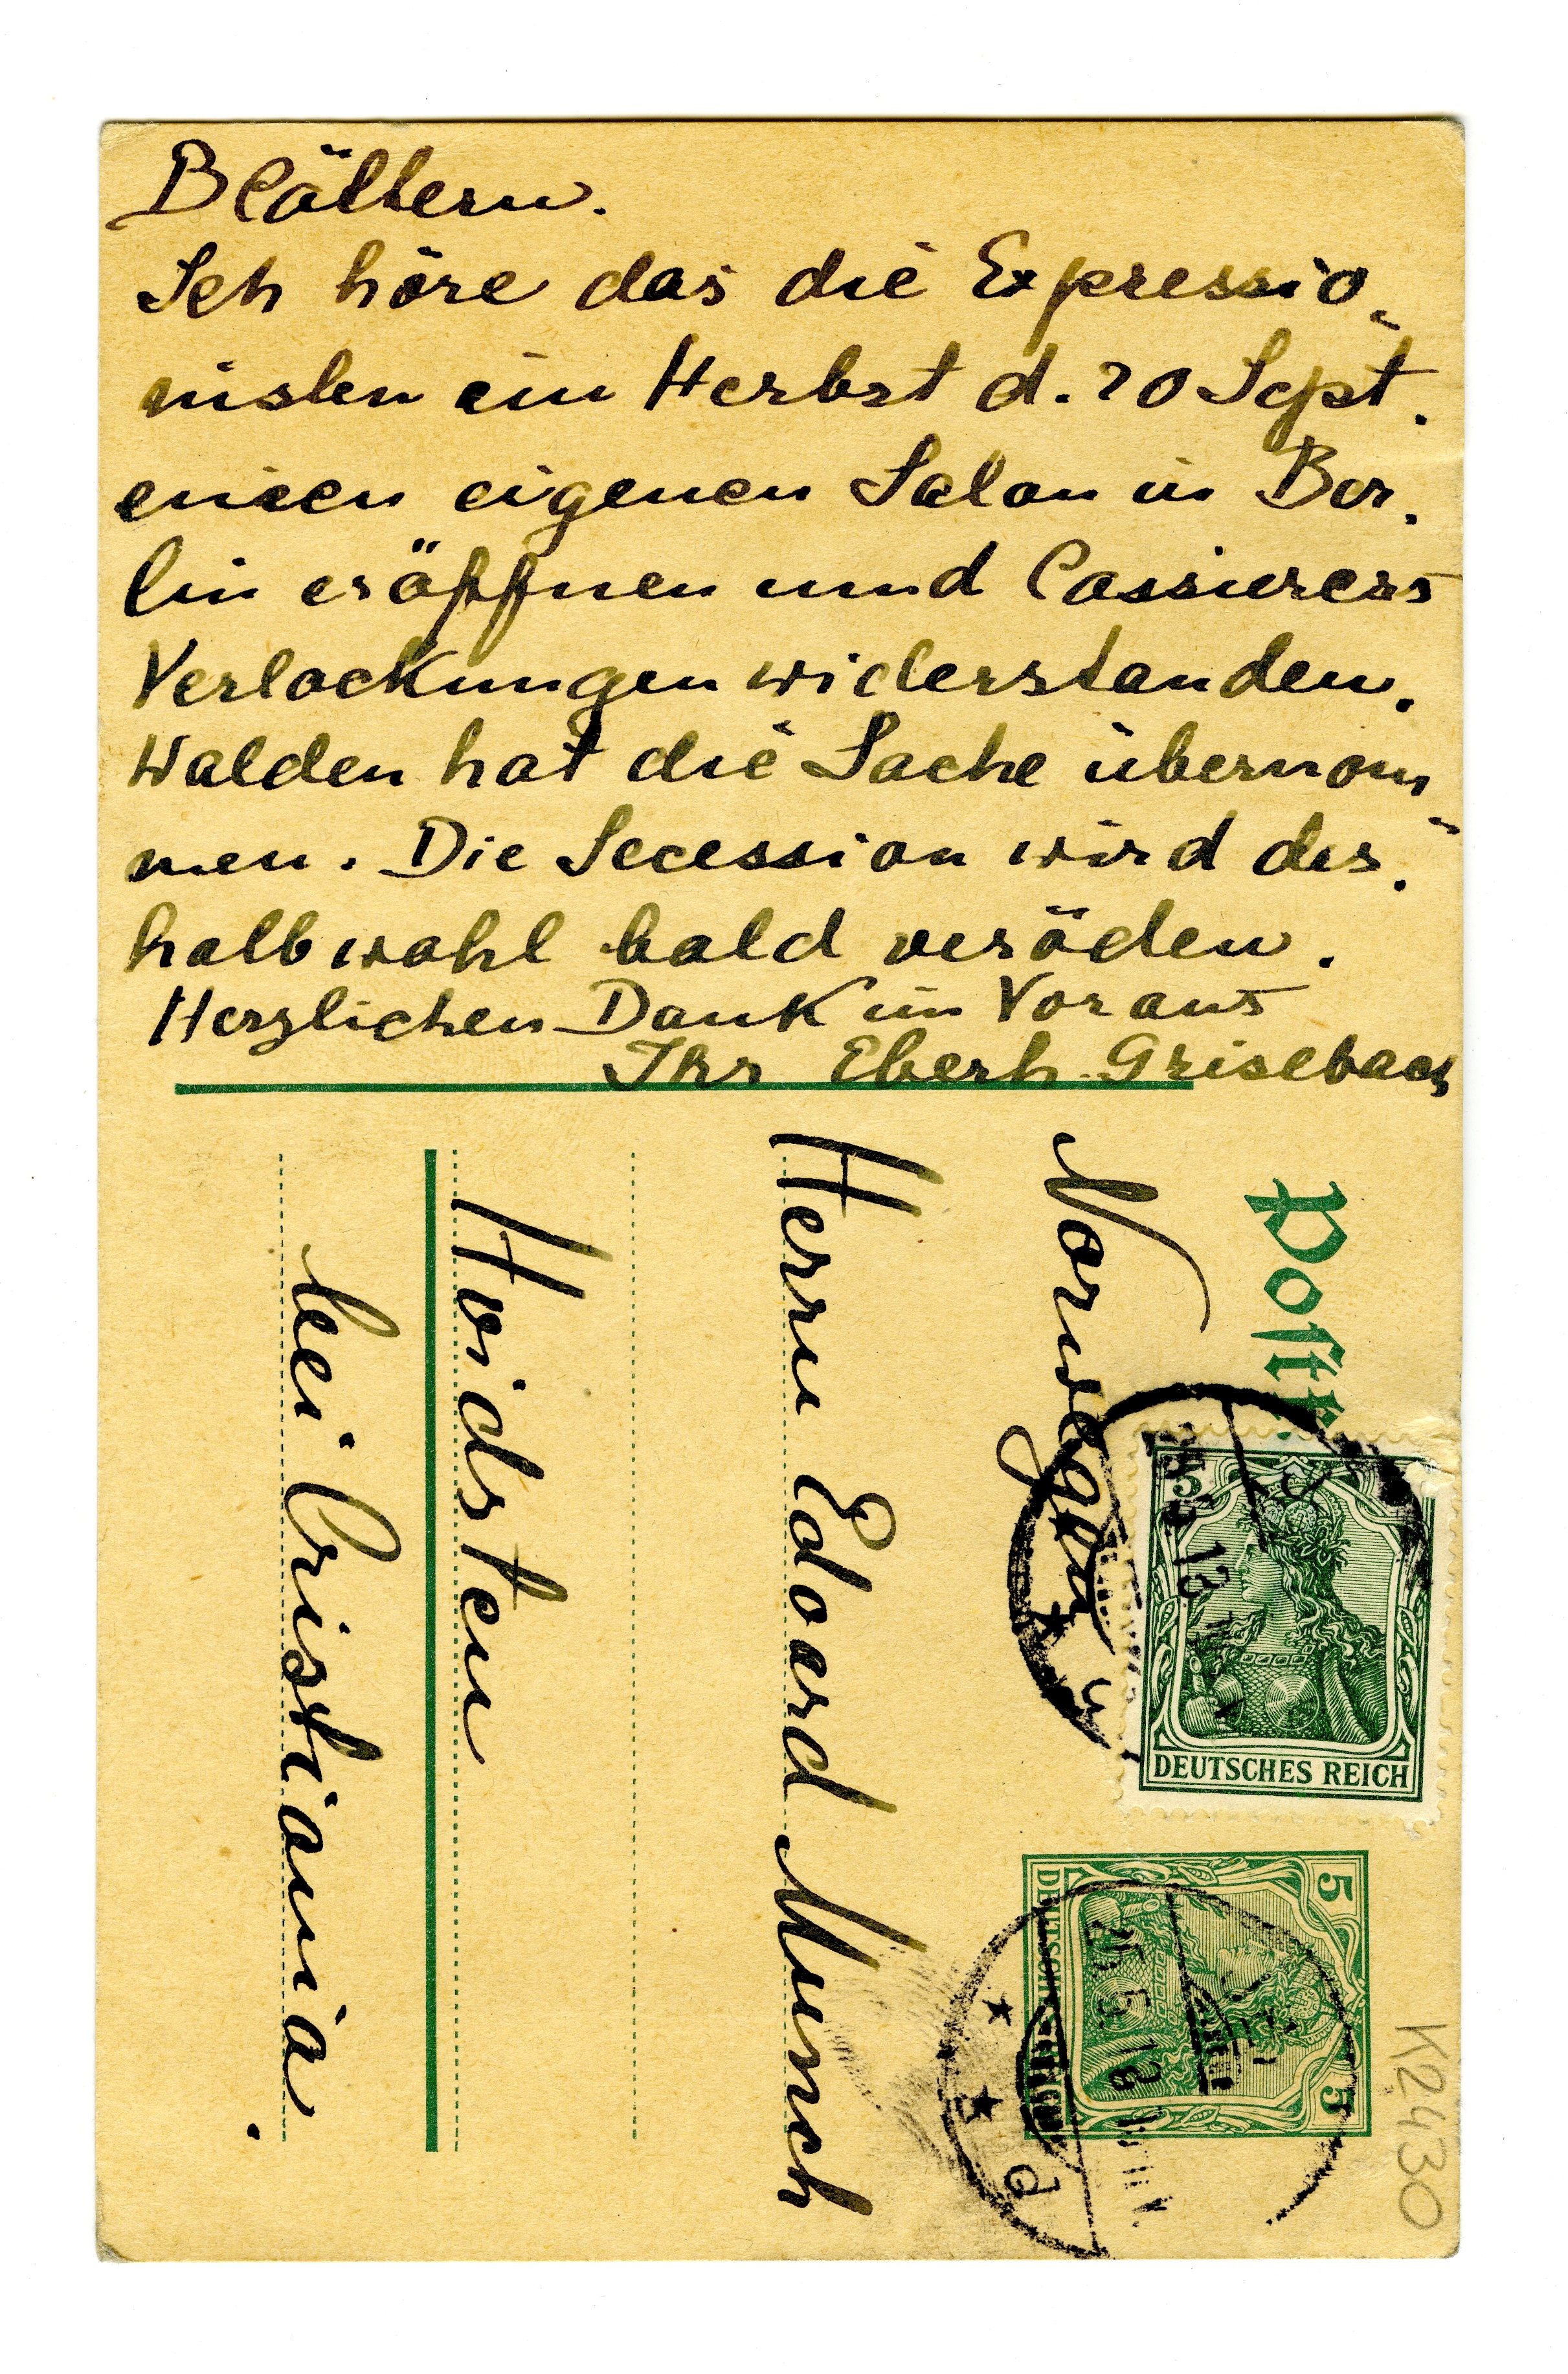 Blättern.
Ich höre das die Expressio-
nisten ein Herbst d. 20 Sept.
einen eigenen Salon in Ber-
lin eröffnen und Cassierers
Verlockungen widerstanden.
Walden hat die Sache übernom-
men. Die Secession wird des-
halb wohl bald veröden.
Herzlichen Dank im Voraus
Ihr Eberh. Grisebach
Postk
Norwegen
Herrn Edoard Munch
Hvidsten
bei Cristiania.
5
25 5 13
DEUTSCHES REICH
5 5
DEUTSCHES REICH
25 5 13
d
K2430